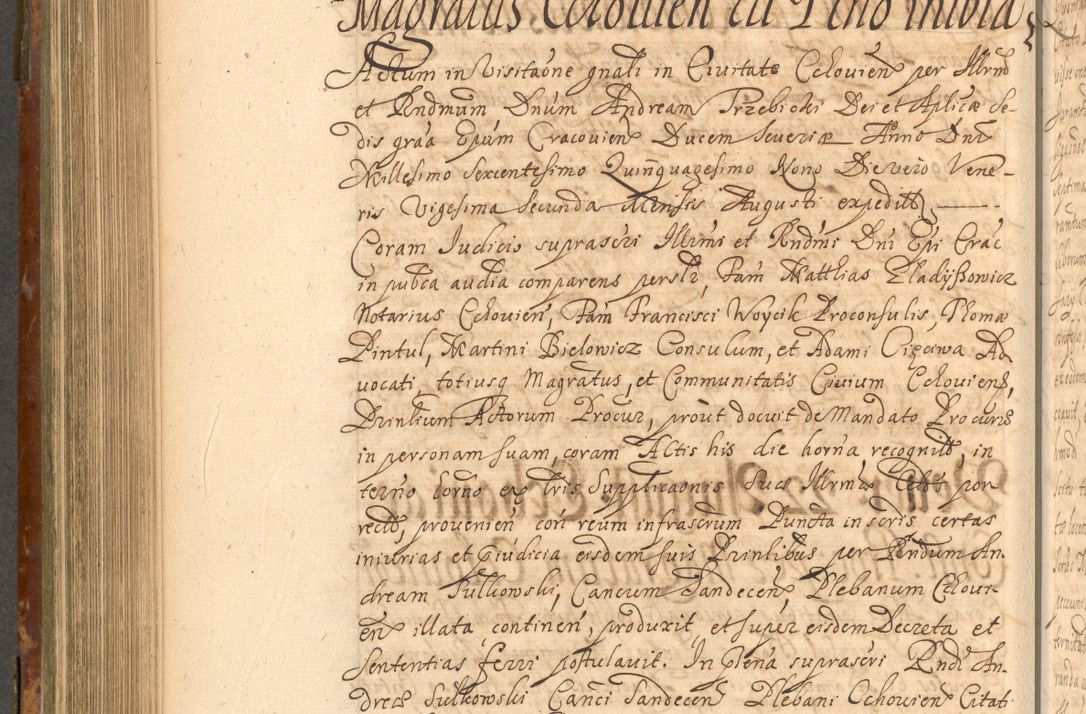 Magratus Cchovien cū Plno inivia
Actum in Visitaōne gnali in Civitate Cchovien per Illrmd
et Rndmum Dnum Andream Trzebicki Dei et Aplicæ Se-
dis graa Epum Cracovien Ducem Severiæ Anno Dni
Millesimo Sexcentesimo Quinquagesimo Nono Die vero Vene-
ris Vigesima Secunda Mensis Augusti expedit
Coram Judicio suprascri Illrmi et Rndmi Dni Epi Crac
in pubca audia comparens persłr, Fam Matthias Eladyszowicz
Notarius Cchovien, Fam Francisci Woycik Proconsulis, Thomæ
Pintul, Martini Bielowicz Consulum, et Adami Cięciwa Ad
vocati, totiusq Magratus, et Communitatis Civium Cchoviens,
Prinlium Actorum Procur, prout docuit de Mandato Procuris
in personam suam, coram Actis his die horna recognit, in
terno horno ex lris Supplicaonis suæ Illrmæ Celst por
rect, provenien con reum infrascrum Puncta in scris certas
iniurias et piudicia eisdem suis Prinlibus per Rndum An
dream Sulkowski, Cancum Sandecen Plebanum Cchovi
en illata continen, produxit, et super eisdem Decreta et
Sententias ferri postulavit. In plena suprascri Rndi An
dreæ Sulkowski Canci Sandecen Plebani Cchovien Citati